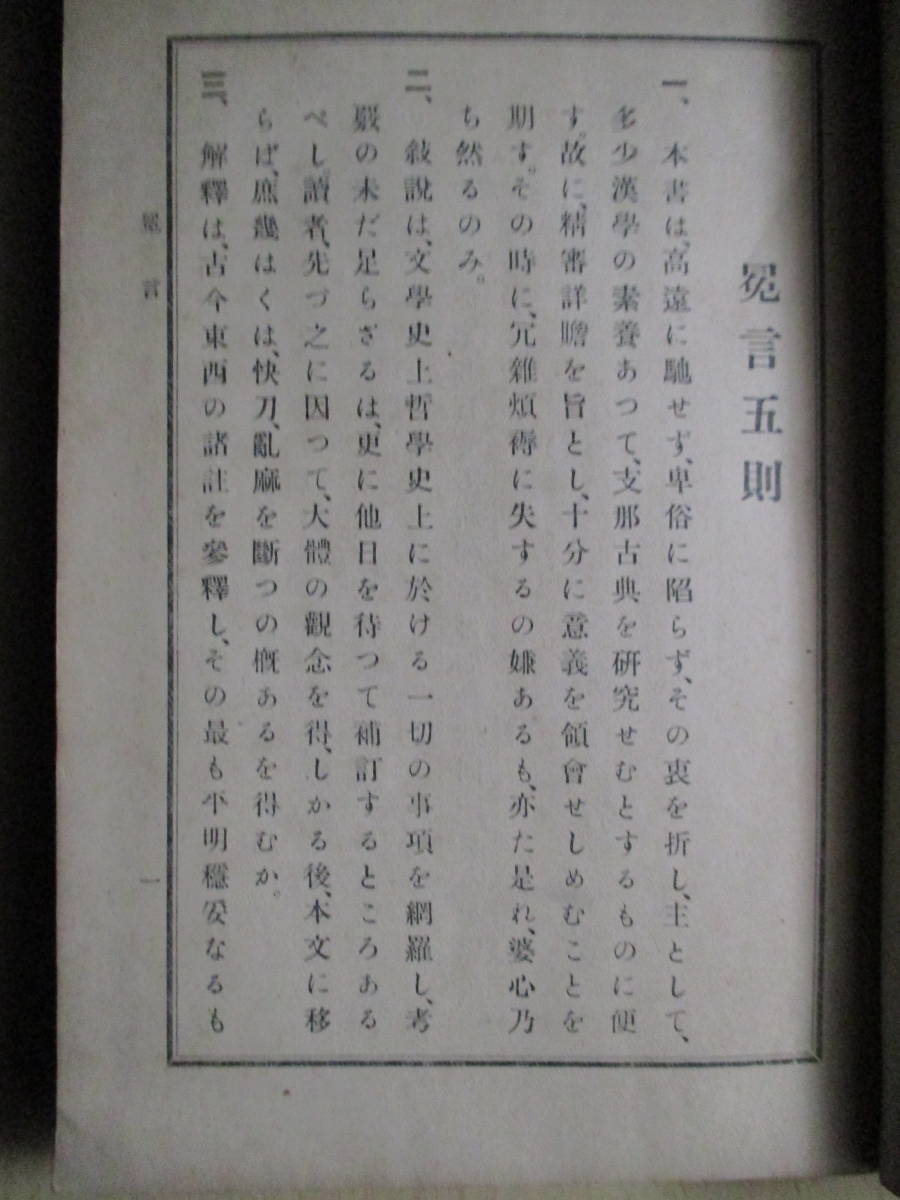 冕言五則
一、本書は、高遠に馳せず、卑俗に陷らず、その衷を折し、主として、
多少漢學の素養あつて、支那古典を研究せむとするものに便
す。故に、精審詳贍を旨とし、十分に意義を領會せしめむことを
期す。その時に、冗雜煩縟に失するの嫌あるも、亦た是れ、婆心乃
ち然るのみ。
二、敍説は、文學史上哲學史上に於ける一切の事項を網羅し、考
覈の未だ足らざるは、更に他日を待つて補訂するところある
べし。讀者、先づ之に因つて、大體の觀念を得、しかる後、本文に移
らば、庶幾はくは、快刀、亂麻を斷つの概あるを得むか。
三、解釋は、古今東西の諸註を參釋し、その最も平明穩妥なるも
冕言
一